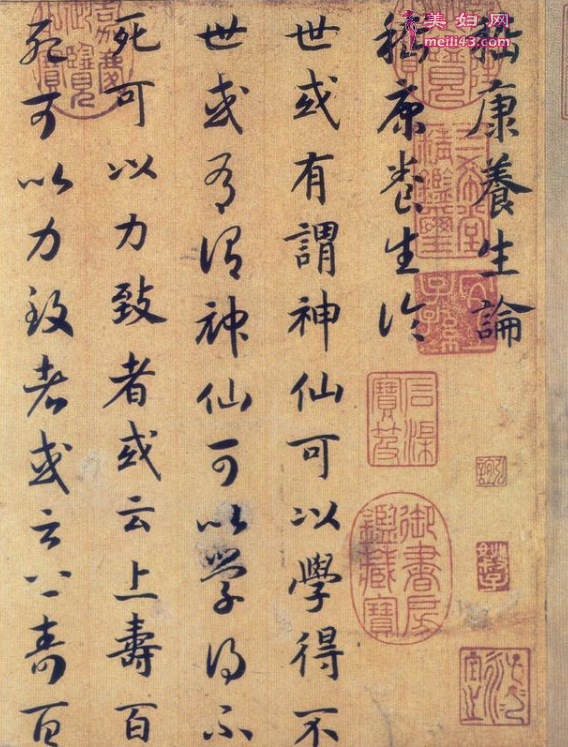 美妇网
meili43.com
嵇康養生論
嵇康養生論
世或有謂神仙可以學得不
世或有謂神仙可以學得不
死可以力致者或云上壽百
死可以力致者或云上壽百
三希堂精鑑璽
宜子孫
石渠寶笈
御書房鑑藏寶
嘉慶御覽之寶